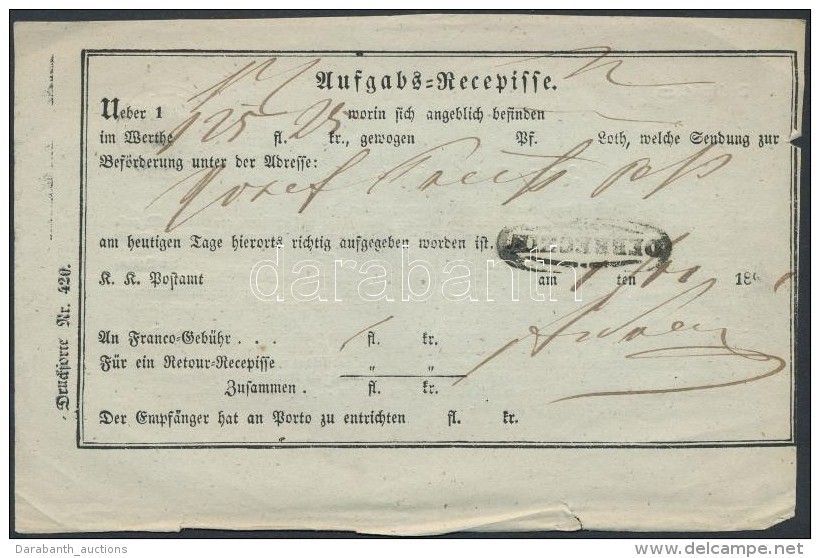 Aufgabs=Recepisse.
Ueber 1 worin sich angeblich befinden
im Werthe 125 fl. 25 kr., gewogen Pf. Loth, welche Sendung zur
Beförderung unter der Adresse:
Josef
am heutigen Tage hierorts richtig aufgegeben worden ist. DEBRECZIN
K. K. Postamt am ten 186
An Franco=Gebühr . . . fl. kr.
Für ein Retour=Recepisse „ „
Zusammen . fl. kr.
Der Empfänger hat an Porto zu entrichten fl. kr.
Drucksorte Nr. 420.
darabanth.com
Darabanth_auctions
delcampe.net